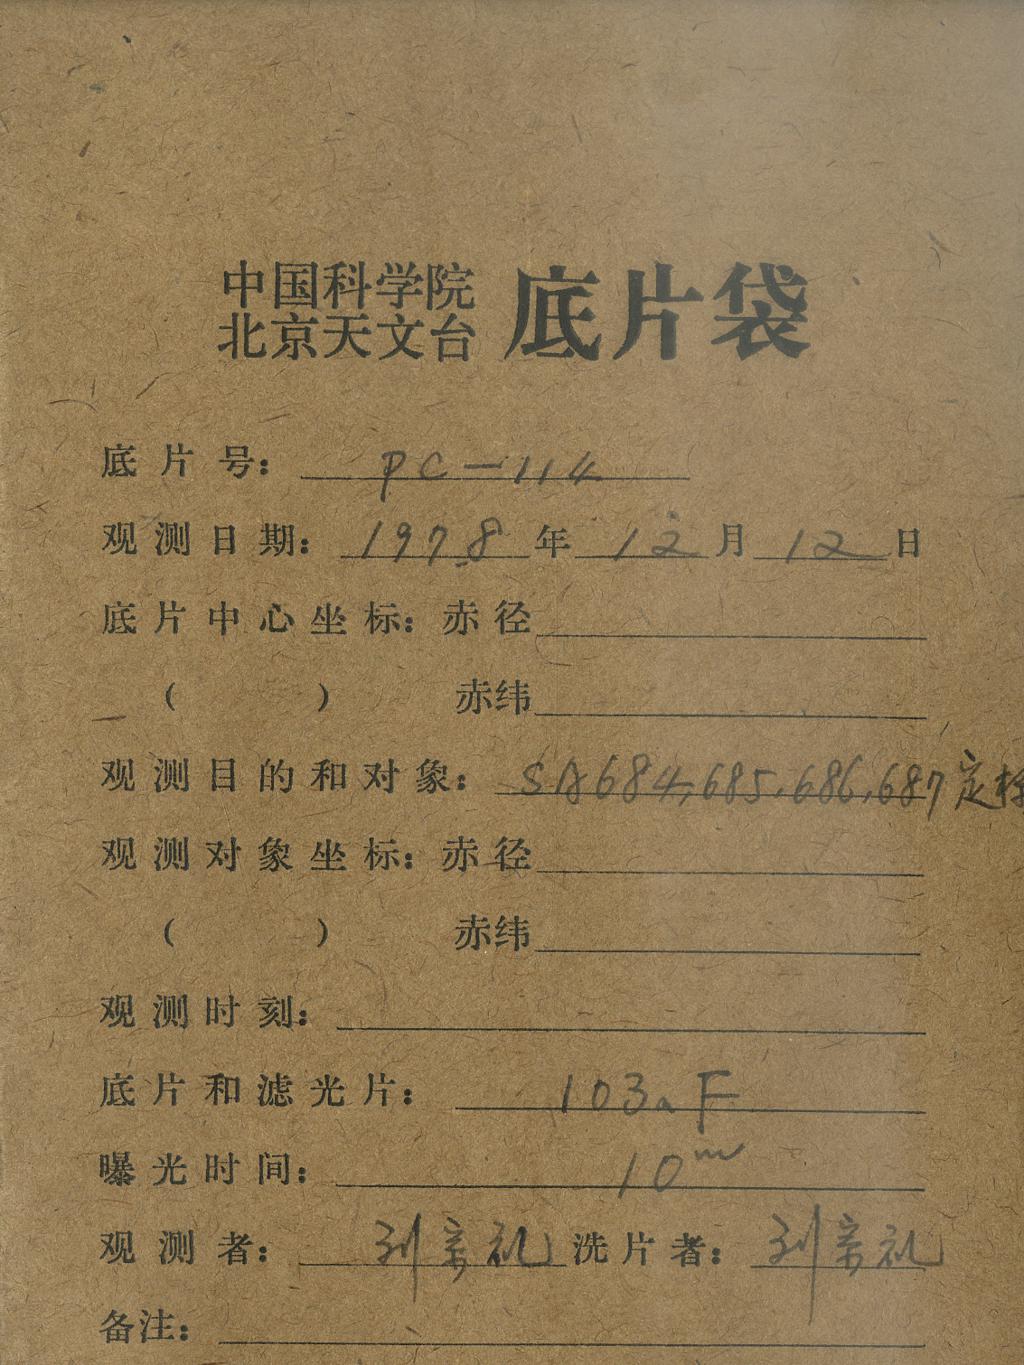 中国科学院
北京天文台 底片袋
底片号: PC-114
观测日期: 1978年12月12日
底片中心坐标: 赤径
( ) 赤纬
观测目的和对象: SA684,685,686,687定标
观测对象坐标: 赤径
( ) 赤纬
观测时刻:
底片和滤光片: 103aF
曝光时间: 10m
观测者: 刘宗礼 洗片者: 刘宗礼
备注: